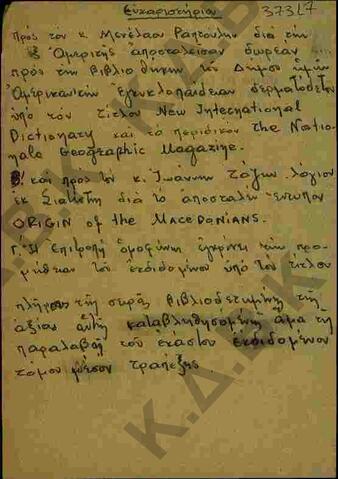 Εὐχαριστήρια 37327
Πρὸς τὸν κ. Μενέλαον διὰ τὴν
ἐξ Ἀμερικῆς ἀποσταλεῖσαν δωρεὰν
πρὸς τὴν βιβλιοθήκην τοῦ Δήμου
Ἀμερικανικὴν Ἐγκυκλοπαίδειαν δερματόδετον
ὑπὸ τὸν τίτλον New International
Dictionary καὶ τὸ περιοδικὸν the Natio-
nale Geographic Magazine.
Β! καὶ πρὸς τὸν κ. Ἰωάννην λόγιον
ἐκ Σιατίστης διὰ τὸ ἀποσταλὲν ἔντυπον
ORIGIN of the MACEDONIANS.
Γ! Ἡ Ἐπιτροπὴ ὁμοφώνως ἐγκρίνει τὴν προ-
μήθειαν τοῦ ἐκδιδομένου ὑπὸ τὸν τίτλον
πλήρους τῆς σειρᾶς βιβλιοδετημένης τῆς
ἀξίας αὐτῆς καταβληθησομένης ἅμα τῇ
παραλαβῇ τοῦ ἑκάστου ἐκδιδομένου
τόμου μέσον τραπέζης.
Κ.Δ.Β.Κ